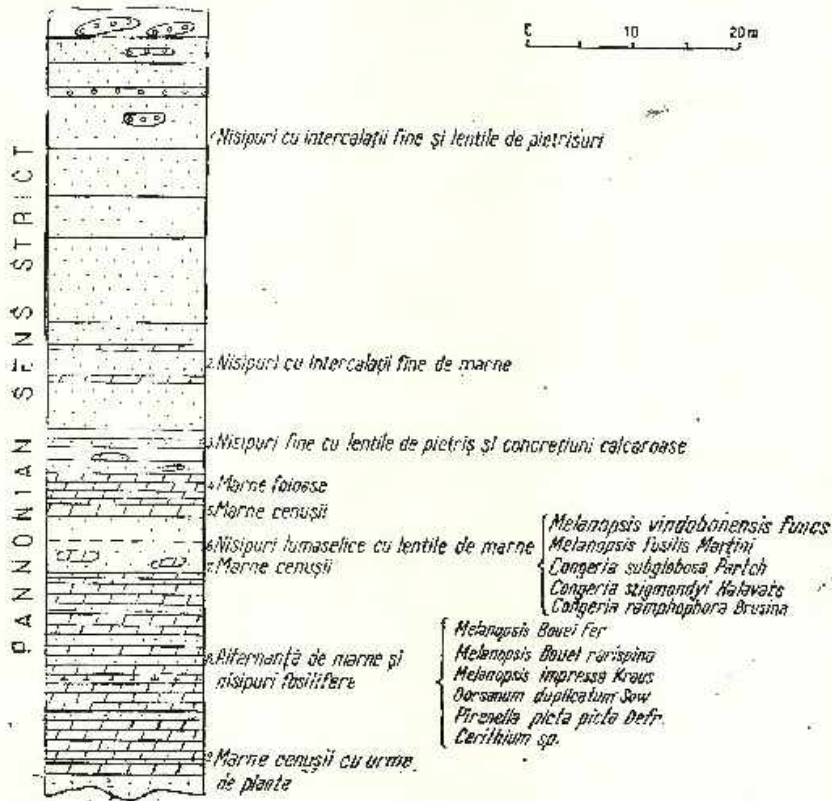 0 10 20 m
PANNONIAN SENS STRICT
1 Nisipuri cu intercalații fine și lentile de pietrisuri
2 Nisipuri cu intercalații fine de marne
3 Nisipuri fine cu lentile de pietriș și concrețiuni calcaroase
4 Marne foioase
5 Marne cenușii
6 Nisipuri lumaselice cu lentile de marne
7 Marne cenușii
Melanopsis vindobonensis Fuchs
Melanopsis fusilis Martini
Congeria subglobosa Partch
Congeria szigmondyi Halavats
Congeria ramphophora Brusina
8 Alternanță de marne și
nisipuri fosilifere
Melanopsis Bouei Fer
Melanopsis Bouei rarispina
Melanopsis impressa Kraus
Dorsanum duplicatum Sow
Pirenella picta picta Defr.
Cerithium sp.
9 Marne cenușii cu urme
de plante